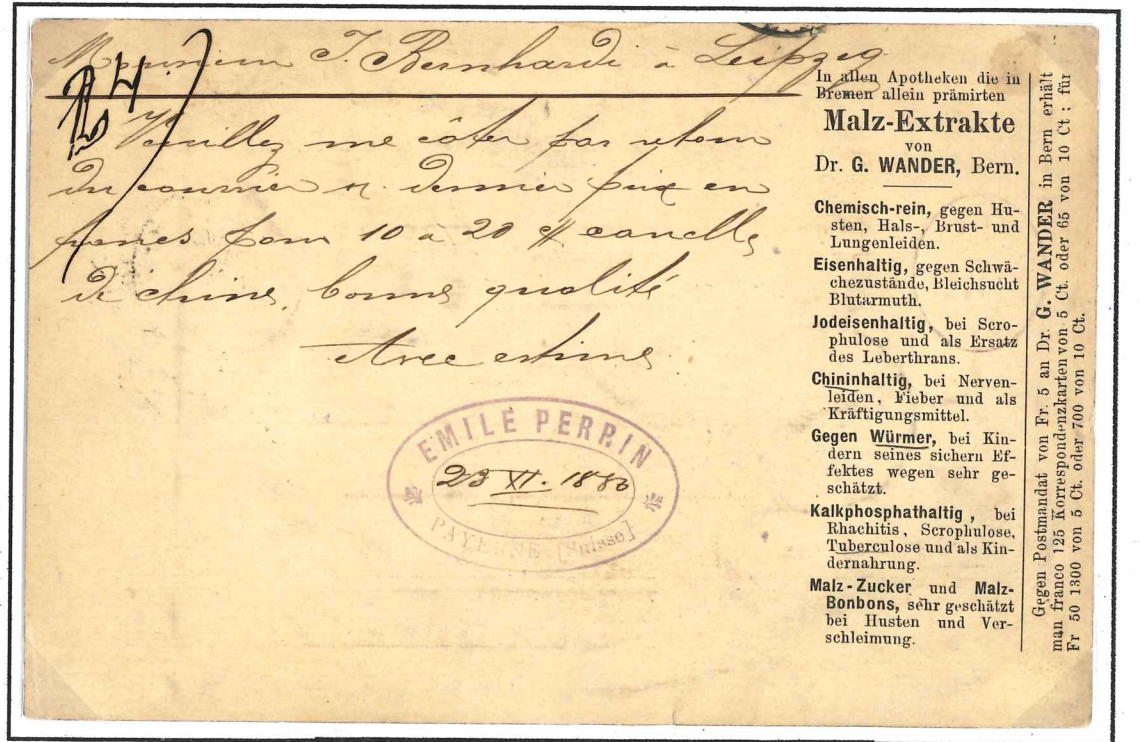 Monsieur J. Bernhardi à Leipzig
Veuillez me côter par retour
du courrier v. dernier prix en
francs pour 10 a 20 ℔ canelle
de chine, bonne qualité
Avec estime
EMILE PERRIN
23 XI. 1880
PAYERNE [Suisse]
In allen Apotheken die in
Bremen allein prämirten
Malz-Extrakte
von
Dr. G. WANDER, Bern.
Chemisch-rein, gegen Hu-
sten, Hals-, Brust- und
Lungenleiden.
Eisenhaltig, gegen Schwä-
chezustände, Bleichsucht
Blutarmuth.
Jodeisenhaltig, bei Scro-
phulose und als Ersatz
des Leberthrans.
Chininhaltig, bei Nerven-
leiden, Fieber und als
Kräftigungsmittel.
Gegen Würmer, bei Kin-
dern seines sichern Ef-
fektes wegen sehr ge-
schätzt.
Kalkphosphathaltig, bei
Rhachitis, Scrophulose,
Tuberculose und als Kin-
dernahrung.
Malz-Zucker und Malz-
Bonbons, sehr geschätzt
bei Husten und Ver-
schleimung.
Gegen Postmandat von Fr. 5 an Dr. G. WANDER in Bern erhält
man franco 125 Korrespondenzkarten von 5 Ct. oder 65 von 10 Ct; für
Fr 50 1300 von 5 Ct. oder 700 von 10 Ct.